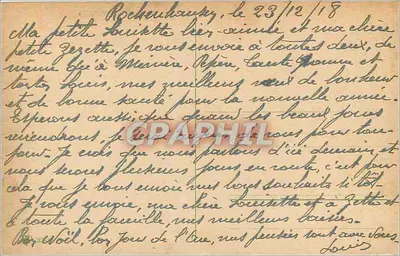 Rockenhausen, le 23/12/18
Ma petite Louisette bien aimée et ma chère
petite Zezette, je vous envoie à toutes deux, de
même qu'à Mémère, Pépère, Tante Jeanne et
tonton Louis, mes meilleurs vœux de bonheur
et de bonne santé pour la nouvelle année.
Espérons aussi que quand les beaux jours
viendrons, je vous pour tou-
jours. Je crois que nous partons d'ici demain, et
nous serons plusieurs jours en route, c'est pour
cela que je vous envoie mes vœux souhaits si tôt.
Je vous envoie, ma chère Louisette et à Zette et
à toute la famille, mes meilleurs baisers.
Bon Noël, bon jour de l'An, mes pensées sont avec vous.
Louis
CPAPHIL